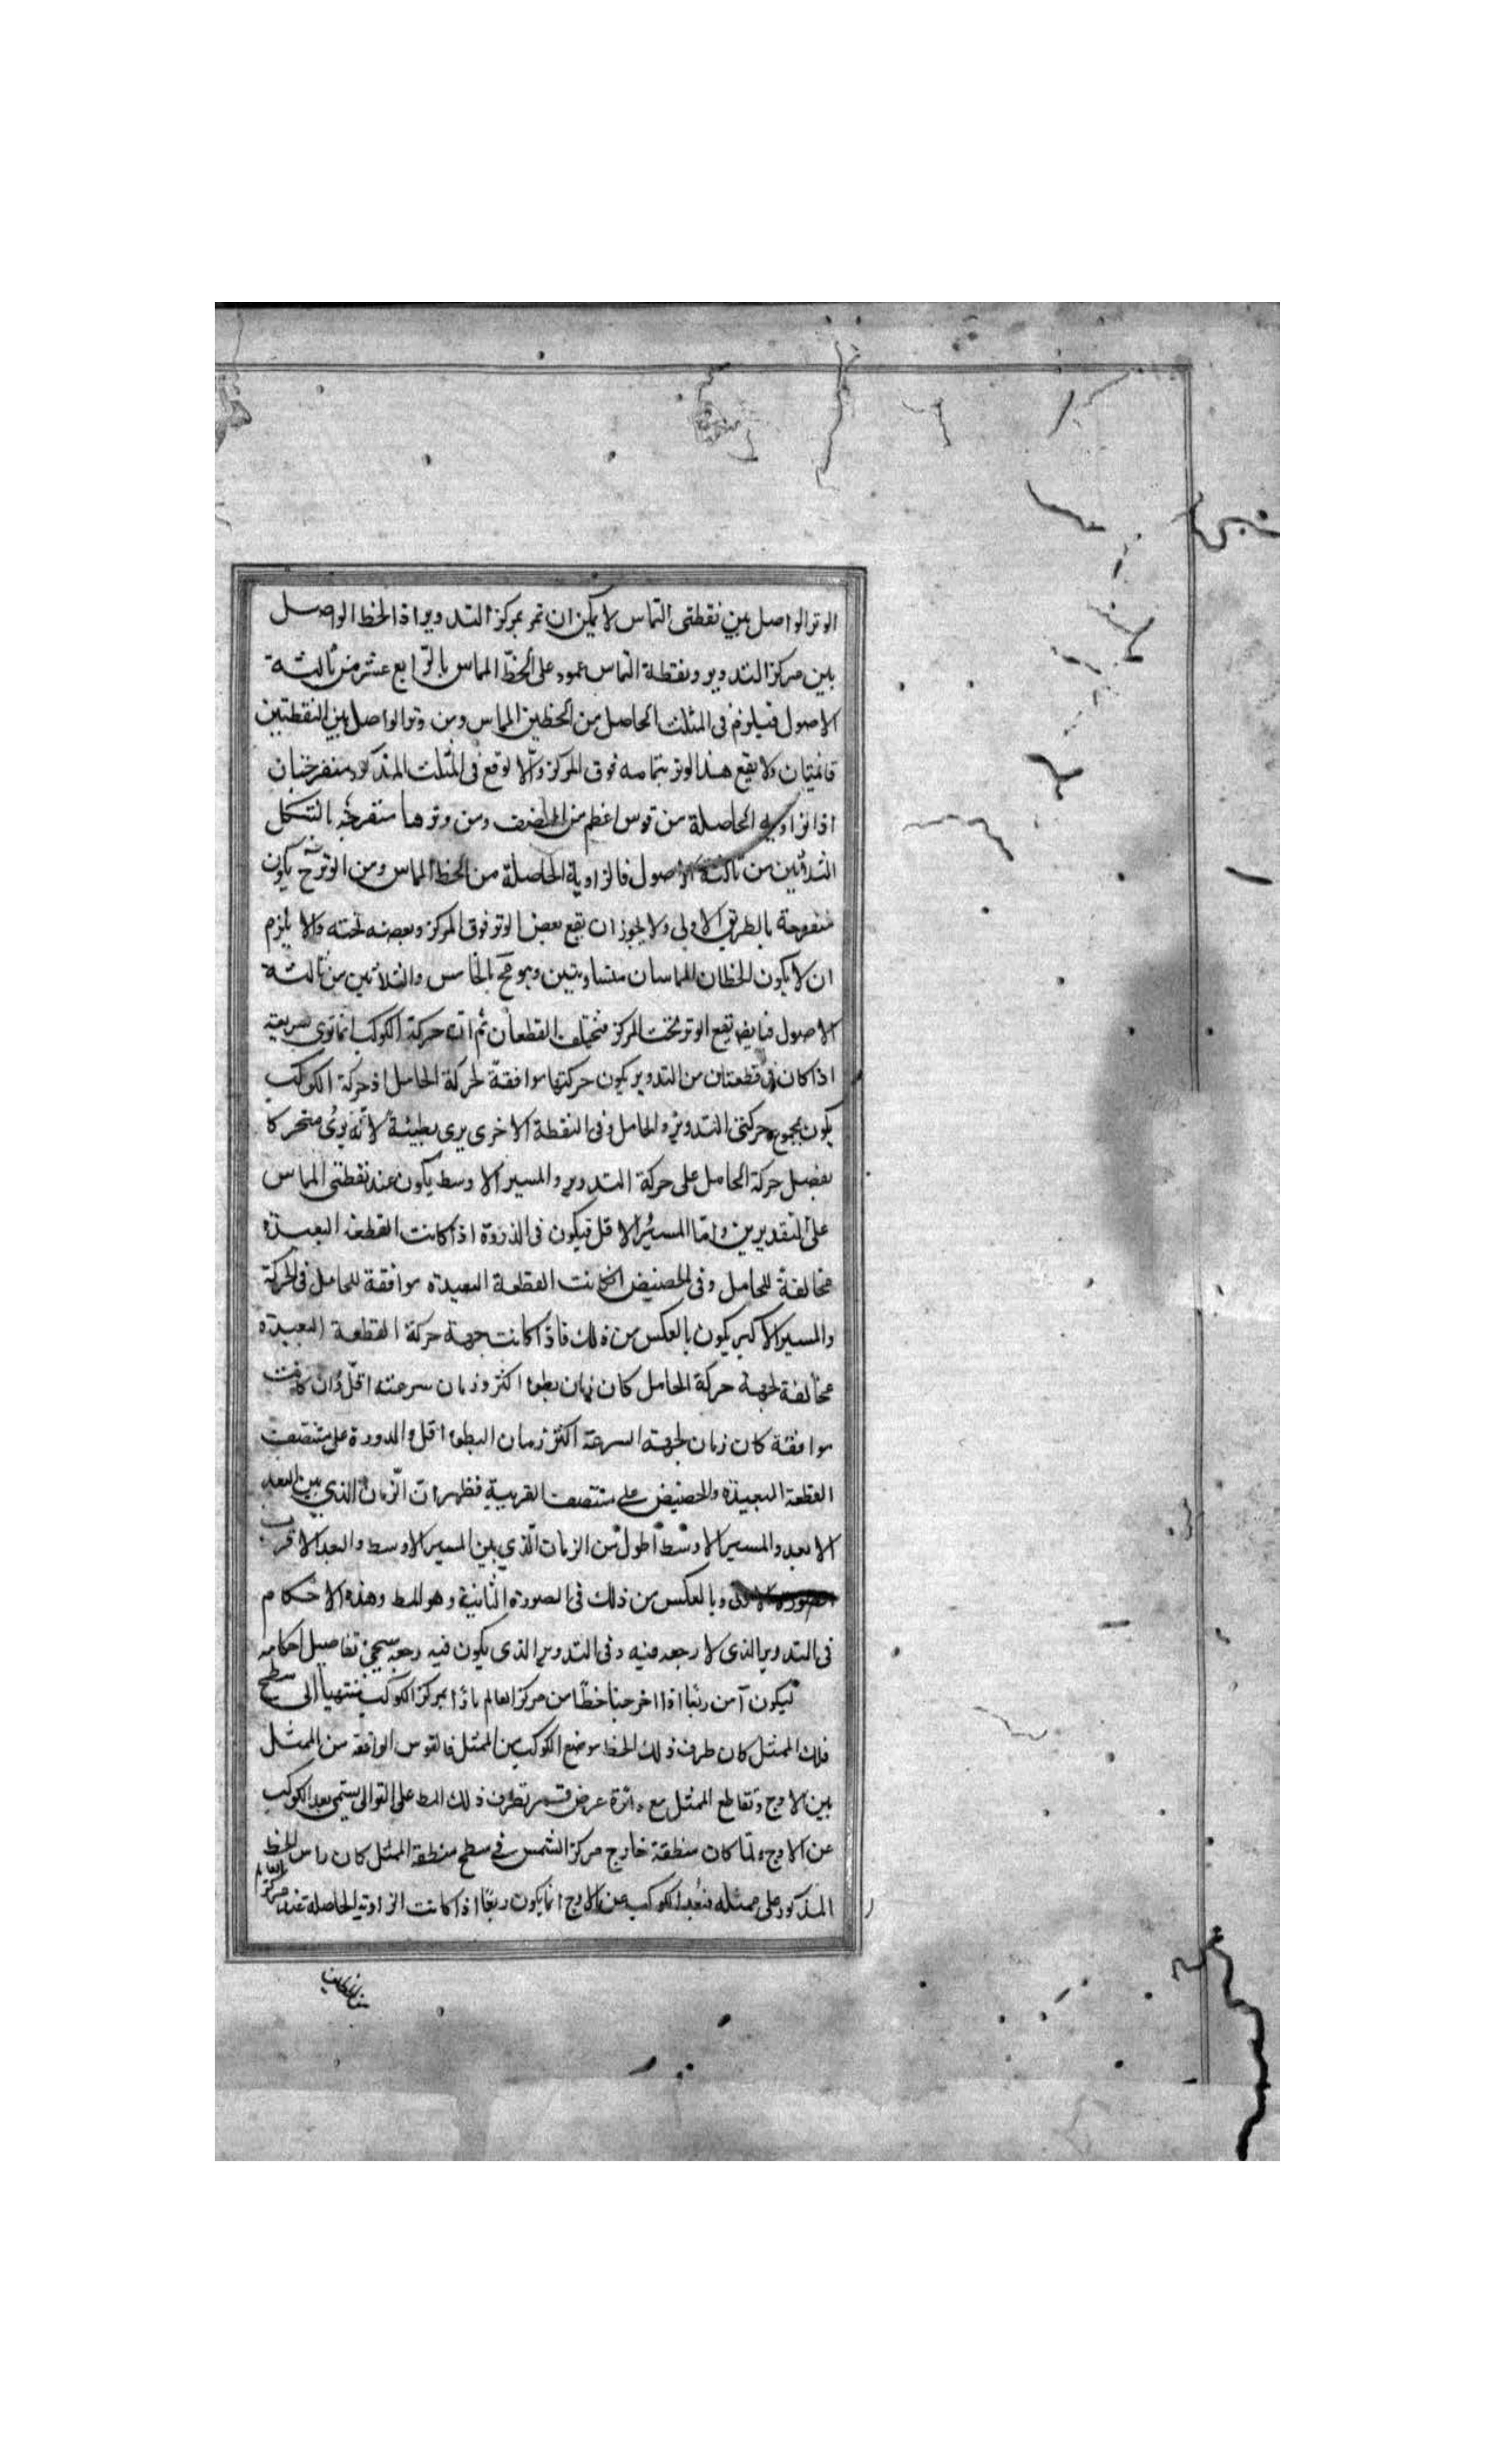 الوتر الواصل بين نقطتي التماس لا يمكن ان تمر بمركز التدوير اذ الخط الواصل
بين مركز التدوير ونقطة التماس عمود على الخط المماس بالرابع عشر من ثالثة
الاصول فيلزم في المثلث الحاصل من الخطين المماس ومن وتر الواصل بين النقطتين
قائمتان ولا يقع هذا الوتر بتمامه فوق المركز والا لوقع في المثلث المذكور منفرجتان
اذ الزاوية الحاصلة من قوس اعظم من النصف ومن وترها منفرجة بالشكل
الثلاثين من ثالثة الاصول فالزاوية الحاصلة من الخط المماس ومن الوتر ح يكون
منفرجة بالطريق الاولى ولا يجوز ان يقع بعض الوتر فوق المركز وبعضه تحته والا يلزم
ان لا يكون الخطان المماسان متساويين وهو مح بالخامس والثلاثين من ثالثة
الاصول يقع الوتر تحت المركز فتختلف القطعتان ثم ان حركة الكوكب انما ترى سريعة
اذا كان في قطعتان من التدوير يكون حركتها موافقة لحركة الحامل اذ حركة الكوكب
يكون بمجموع حركتي التدوير والحامل وفي النقطة الاخرى يرى بطيئة لانه يرى متحركا
بفضل حركة الحامل على حركة التدوير والمسير الاوسط يكون عند نقطتي المماس
على التقديرين واما المسير الاقل فيكون في الذروة اذا كانت القطعة البعيدة
مخالفة للحامل وفي الحضيض ان كانت القطعة البعيدة موافقة للحامل في الحركة
والمسير الاكبر يكون بالعكس من ذلك فاذا كانت جهة حركة القطعة البعيدة
مخالفة لجهة حركة الحامل كان زمان بطوء اكثر وزمان سرعته اقل وان كانت
موافقة كان زمان لجهة السرعة اكثر زمان البطوء اقل والدورة على منتصف
القطعة البعيدة والحضيض على منتصف القريبة فظهر ان الزمان الذي بين البعد
الابعد والمسير الاوسط اطول من الزمان الذي بين المسير الاوسط والبعد الاقرب
وبالعكس من ذلك في الصورة الثانية وهو المط وهذه الاحكام
في التدوير الذي لا رجعه فيه وفي التدوير الذي يكون فيه رجعه سيجئ تفاصيل احكامه
ليكون آ من ربعا اذا اخرجنا خطا من مركز العالم مارا بمركز الكوكب منتهيا الى سطح
فلك الممثل كان طرف ذلك الخط موضع الكوكب من الممثل فالقوس الواقعة من الممثل
بين الاوج وتقاطع الممثل مع دائرة عرض تمر بطرف ذلك الخط على التوالي يسمى بعد الكوكب
عن الاوج ولما كان منطقة خارج مركز الشمس في سطح منطقة الممثل كان راس الخط
المذكور على ممثله فبعد الكوكب عن الاوج انما يكون ربعا اذا كانت الزاوية الحاصلة عند مركز العالم